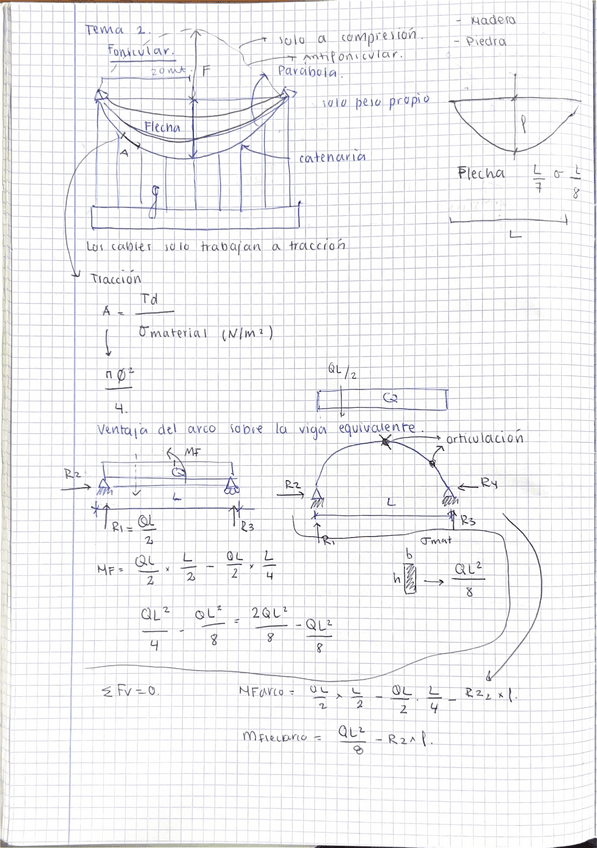 Tema 2.
Funicular.
→ solo a compresión.
→ Antifunicular.
- Madera
- Piedra
20mt.
F
Parábola.
solo peso propio
Flecha
f
A
catenaria
Flecha L/7 o L/8
g
L
Los cables solo trabajan a tracción
Tracción
A = Td / σmaterial (N/m²)
π Ø² / 4.
QL/2
Q
Ventaja del arco sobre la viga equivalente.
articulación
MF
R2
Q
L
R1 = QL/2
R3
R2
L
R4
R1
R3
σmat
MF = QL/2 × L/2 - QL/2 × L/4
b
h → QL²/8
QL²/4 - QL²/8 = 2QL²/8 - QL²/8
ΣFv = 0.
MFarco = QL/2 × L/2 - QL/2 · L/4 - R22 × f.
= QL²/8 - R2 × f.